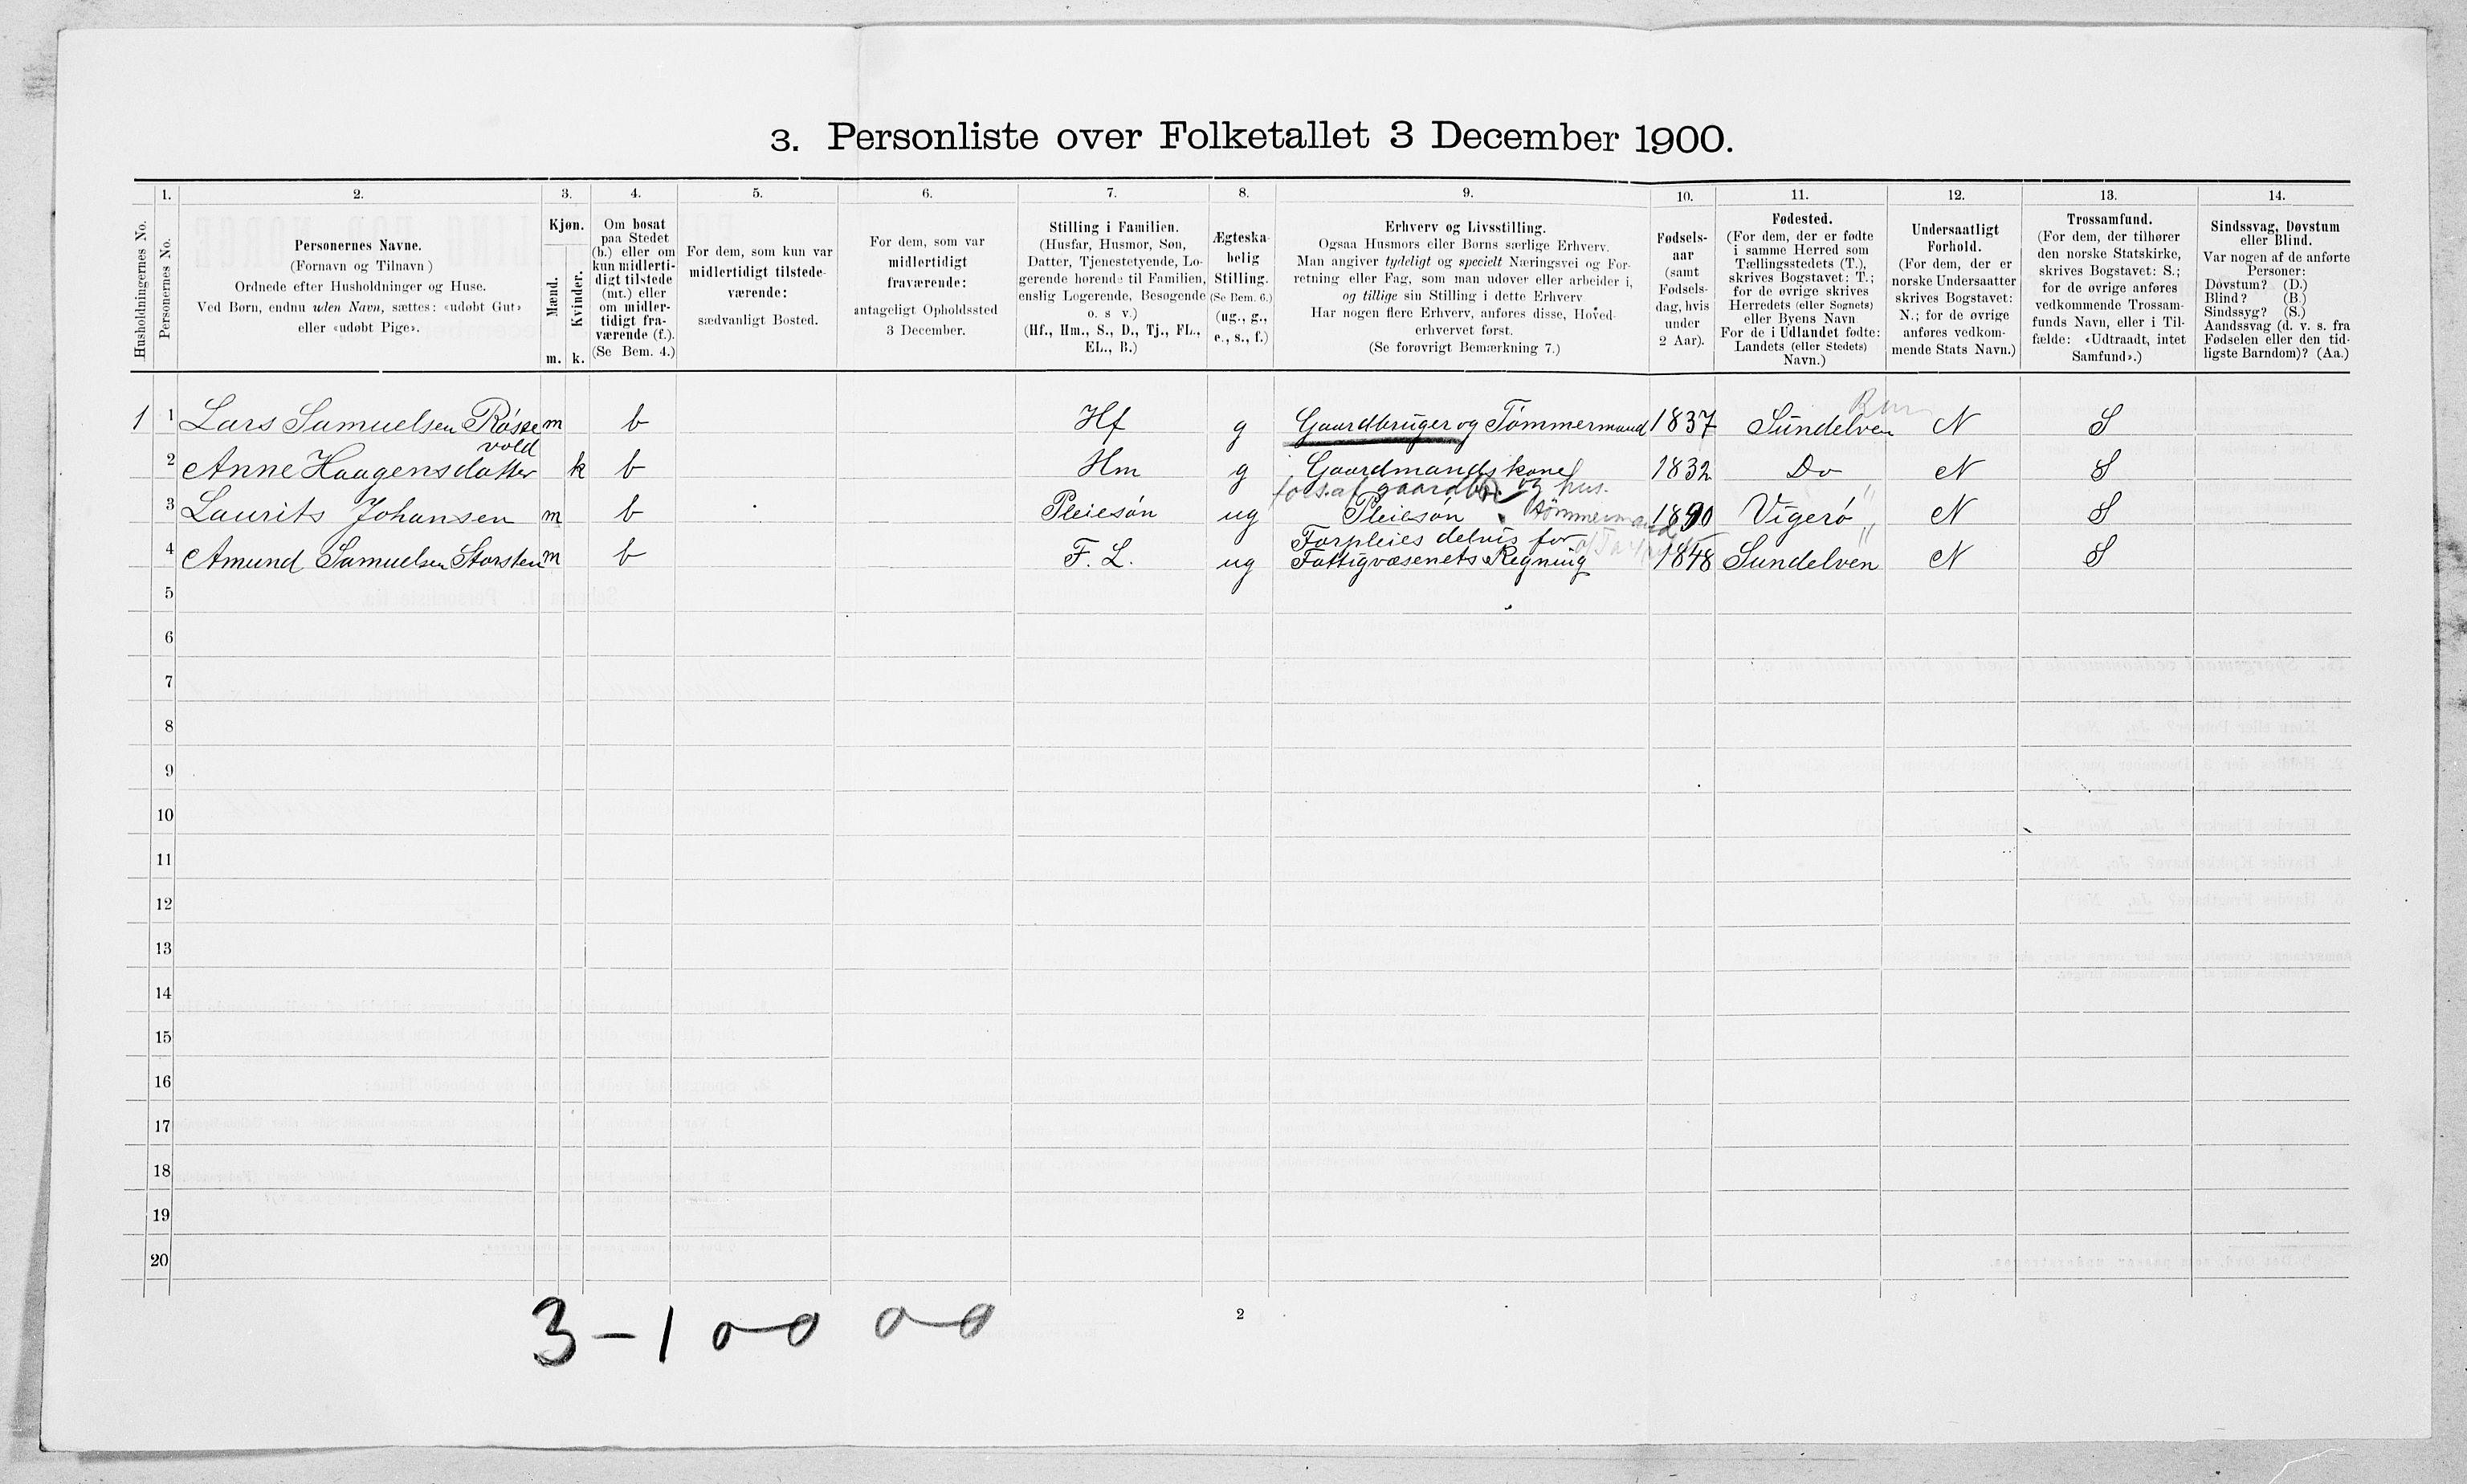 3. Personliste over Folketallet 3 December 1900.
1. 2. 3. 4. 5. 6. 7. 8. 9. 10. 11. 12. 13. 14.
Husholdningernes No.
Personernes No.
Personernes Navne.
(Fornavn og Tilnavn)
Ordnede efter Husholdninger og Huse.
Ved Børn, endnu uden Navn, sættes: «udøbt Gut»
eller «udøbt Pige».
Kjøn.
Mænd.
Kvinder.
m. k.
Om bosat
paa Stedet
(b.) eller om
kun midlerti-
digt tilstede
(mt.) eller
om midler-
tidigt fra-
værende (f.).
(Se Bem. 4.)
For dem, som kun var
midlertidigt tilstede-
værende:
sædvanligt Bosted.
For dem, som var
midlertidigt
fraværende:
antageligt Opholdssted
3 December.
Stilling i Familien.
(Husfar, Husmor, Søn,
Datter, Tjenestetyende, Lo-
gerende hørende til Familien,
enslig Logerende, Besøgende
o. s v.)
(Hf., Hm., S., D., Tj., FL.,
EL., B.)
Ægteska-
belig
Stilling.
(Se Bem. 6.)
(ug., g.,
e., s., f.)
Erhverv og Livsstilling.
Ogsaa Husmors eller Børns særlige Erhverv.
Man angiver tydeligt og specielt Næringsvei og For-
retning eller Fag, som man udøver eller arbeider i,
og tillige sin Stilling i dette Erhverv
Har nogen flere Erhverv, anføres disse, Hoved-
erhvervet først.
(Se forøvrigt Bemærkning 7.)
Fødsels-
aar
(samt
Fødsels-
dag, hvis
under
2 Aar).
Fødested.
(For dem, der er fødte
i samme Herred som
Tællingsstedets (T.),
skrives Bogstavet: T.;
for de øvrige skrives
Herredets (eller Sognets)
eller Byens Navn
For de i Udlandet fødte:
Landets (eller Stedets)
Navn.)
Undersaatligt
Forhold.
(For dem, der er
norske Undersaatter
skrives Bogstavet:
N.; for de øvrige
anføres vedkom-
mende Stats Navn.)
Trossamfund.
(For dem, der tilhører
den norske Statskirke,
skrives Bogstavet: S.;
for de øvrige anføres
vedkommende Trossam-
funds Navn, eller i Til-
fælde: «Udtraadt, intet
Samfund».)
Sindssvag, Døvstum
eller Blind.
Var nogen af de anførte
Personer:
Døvstum? (D.)
Blind? (B.)
Sindssyg? (S.)
Aandssvag (d. v. s. fra
Fødselen eller den tid-
ligste Barndom)? (Aa.)
1 1 Lars Samuelsen Røsse m b Hf g Gaardbruger og Tømmermand 1837 Sundelven N S
vold
2 Anne Haagensdatter k b Hm g Gaardmandskone 1832 Do N S
fors. af gaardbr. og hus.
3 Laurits Johansen m b Pleiesøn ug Pleiesøn Tømmermand 1890 Vigerø " N S
Forpleies delvis for
4 Amund Samuelsen Storsten m b F. L. ug Fattigvæsenets Regning 1848 Sundelven " N S
5
6
7
8
9
10
11
12
13
14
15
16
17
18
19
20
3 - 1 0-0 0-0
2